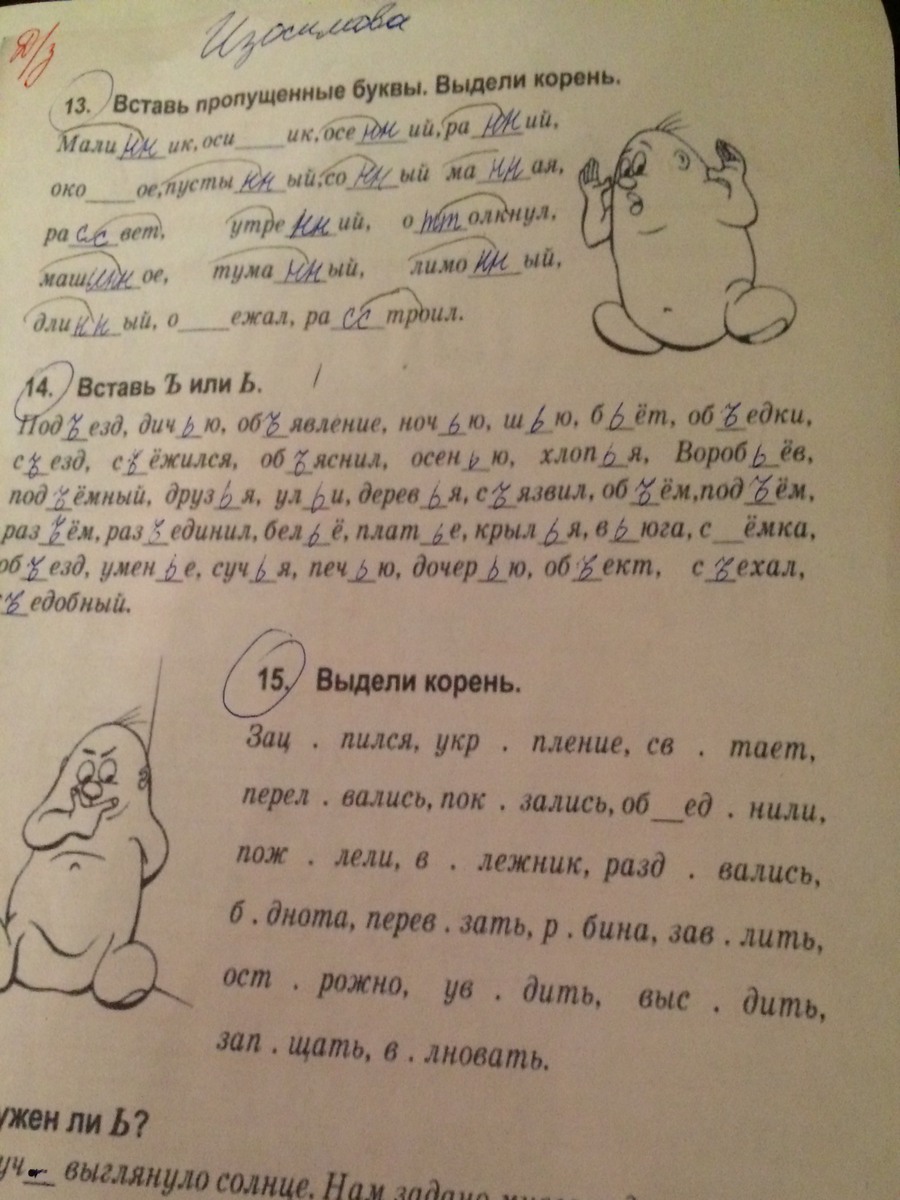 Д/з
Изосимова
13. Вставь пропущенные буквы. Выдели корень.
Малинник, оси____ик, осенний, ранний,
око____ое, пустынный, сонный манная,
рассвет, утренний, оттолкнул,
машинное, туманный, лимонный,
длинный, о____ежал, расстроил.
14. Вставь Ъ или Ь.
Подъезд, дичью, объявление, ночью, шью, бьёт, объедки,
съезд, съёжился, объяснил, осенью, хлопья, Воробьёв,
подъёмный, друзья, ульи, деревья, съязвил, объём, подъём,
разъём, разъединил, бельё, платье, крылья, вьюга, с__ёмка,
объезд, уменье, сучья, печью, дочерью, объект, съехал,
съедобный.
15. Выдели корень.
Зац . пился, укр . пление, св . тает,
перел . вались, пок . зались, об__ед . нили,
пож . лели, в . лежник, разд . вались,
б . днота, перев . зать, р . бина, зав . лить,
ост . рожно, ув . дить, выс . дить,
зап . щать, в . лновать.
ужен ли Ь?
уч__ выглянуло солнце. Нам задано